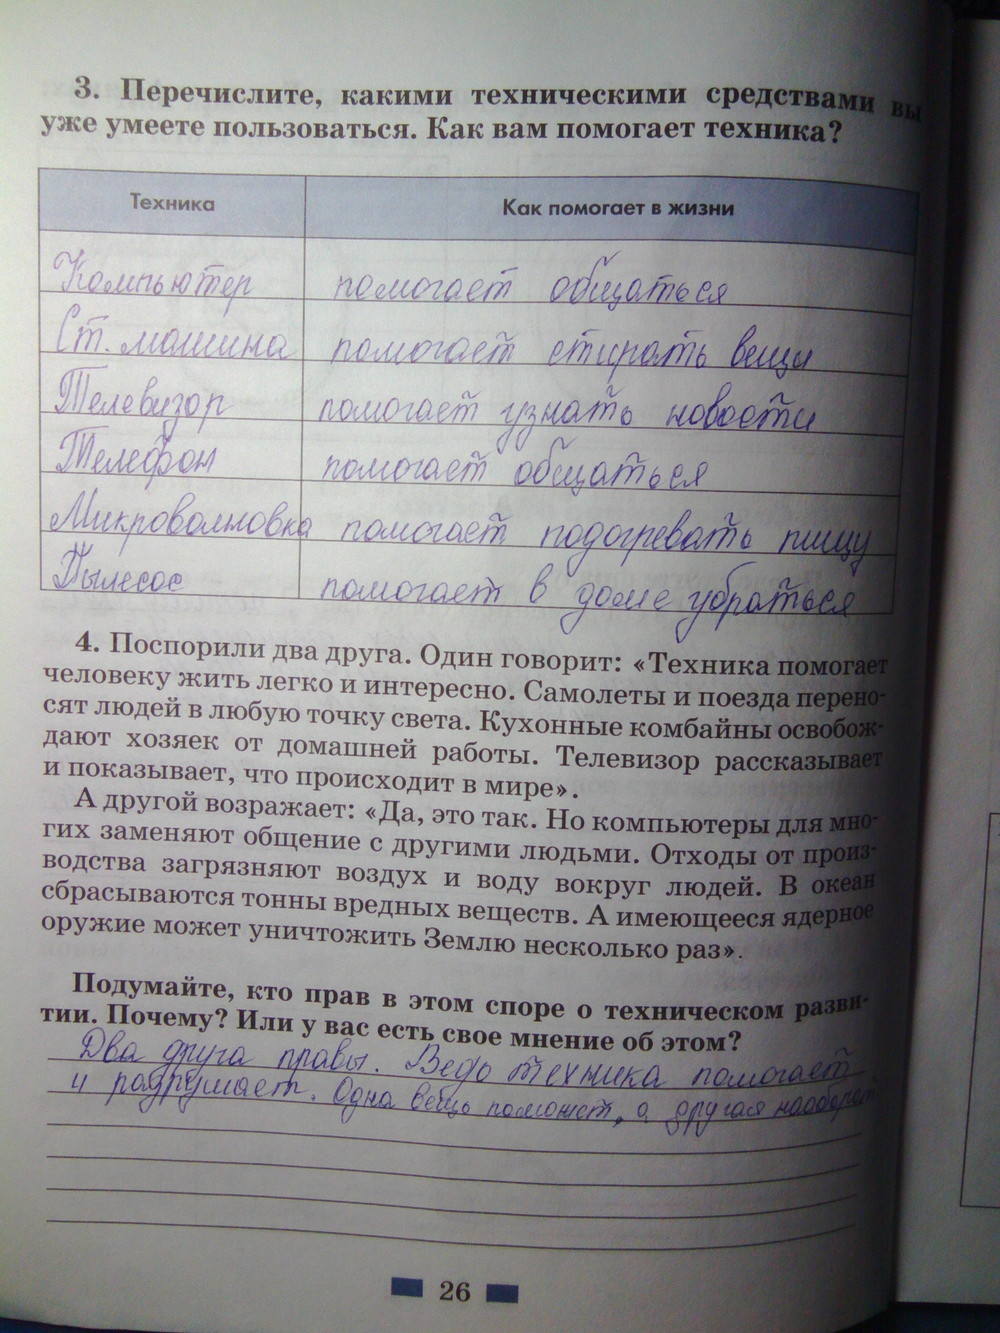 3. Перечислите, какими техническими средствами вы
уже умеете пользоваться. Как вам помогает техника?
Техника Как помогает в жизни
Компьютер помогает общаться
Ст. машина помогает стирать вещи
Телевизор помогает узнать новости
Телефон помогает общаться
Микроволновка помогает подогревать пищу
Пылесос помогает в доме убраться
4. Поспорили два друга. Один говорит: «Техника помогает
человеку жить легко и интересно. Самолеты и поезда перено-
сят людей в любую точку света. Кухонные комбайны освобож-
дают хозяек от домашней работы. Телевизор рассказывает
и показывает, что происходит в мире».
А другой возражает: «Да, это так. Но компьютеры для мно-
гих заменяют общение с другими людьми. Отходы от произ-
водства загрязняют воздух и воду вокруг людей. В океан
сбрасываются тонны вредных веществ. А имеющееся ядерное
оружие может уничтожить Землю несколько раз».
Подумайте, кто прав в этом споре о техническом разви-
тии. Почему? Или у вас есть свое мнение об этом?
Два друга правы. Ведь техника помогает
и разрушает. Одна вещь поможет, а другая наоборот
26